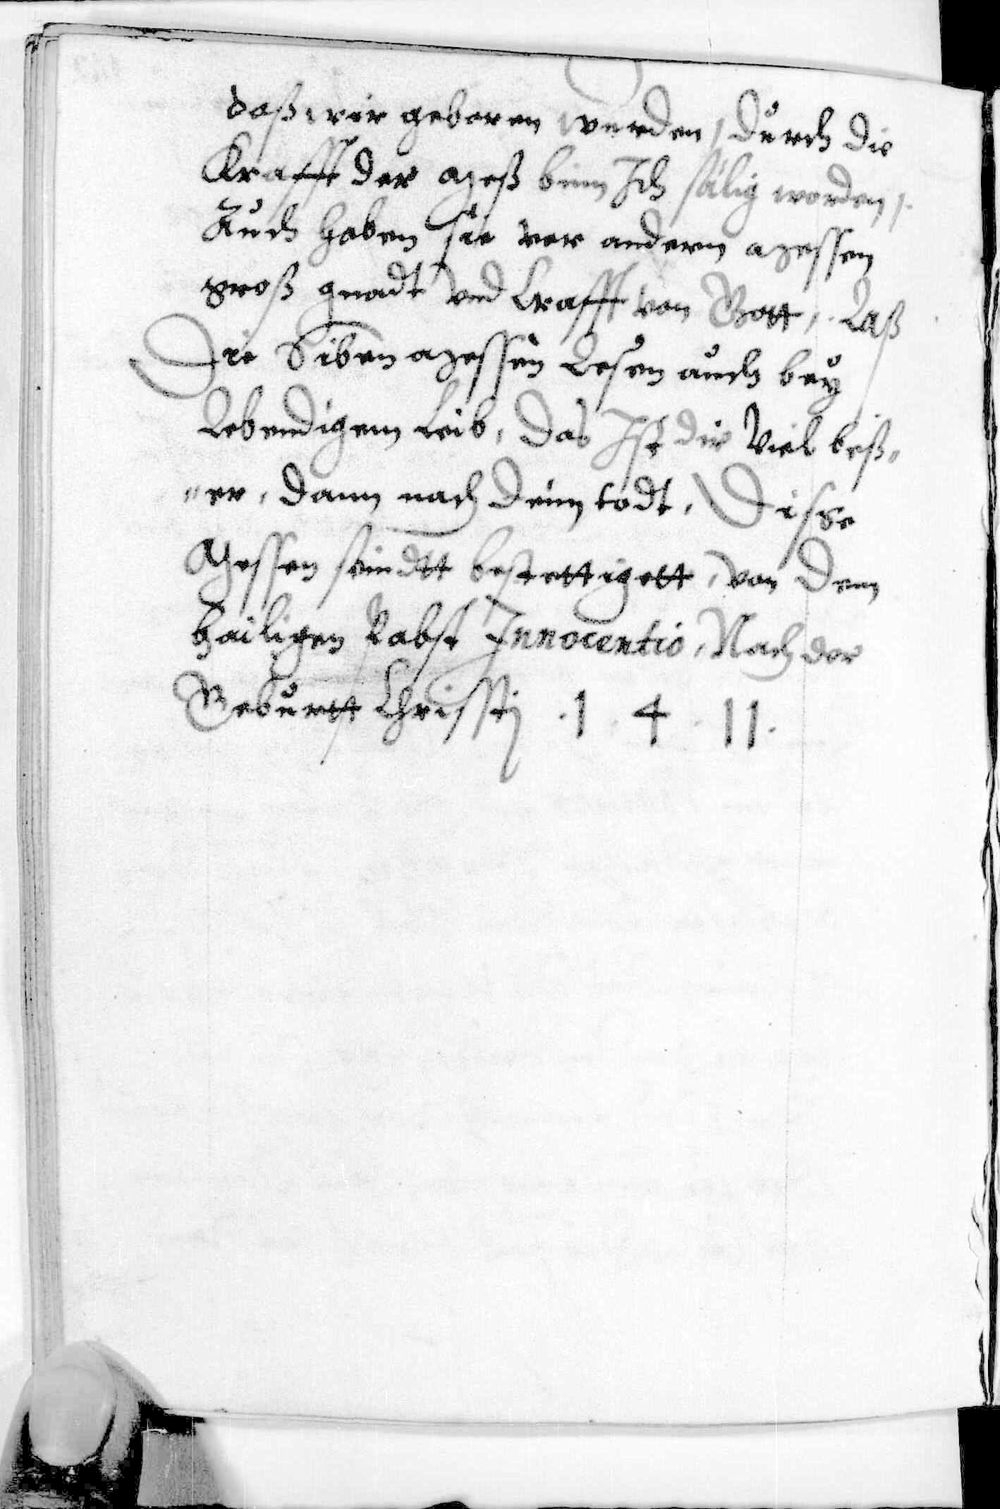 daß wir geboren wurden, durch die
Krafft der Meß binn Ich sälig worden,.
Auch haben sie vor andern Messen
groß gnadt und Crafft von Gott,. Laß
Die Siben Messen Lesen auch bey
Lebendigem Leib, das Ist dir Viel beß„
„er, dann nach deim todt, Disse
Messen seindtt bestettigett, von dem
hailigen Pabst Innocentio, Nach der
Geburtt Christij .1.4.11.